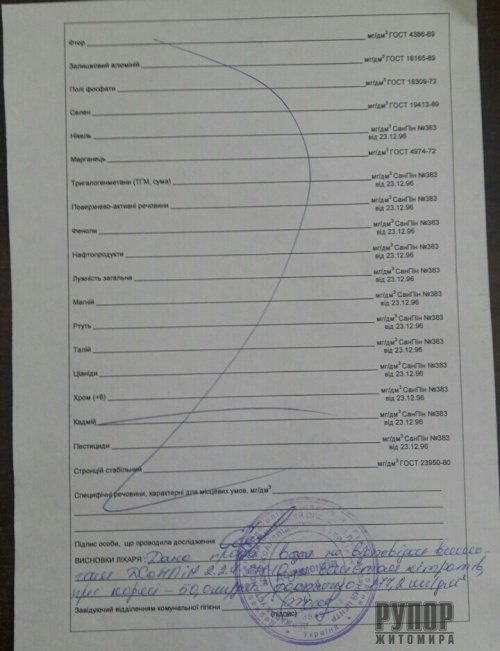 Фтор мг/дм³ ГОСТ 4386-89
Залишковий алюміній мг/дм³ ГОСТ 18165-89
Полі фосфати мг/дм³ ГОСТ 18309-72
Селен мг/дм³ ГОСТ 19413-89
Нікель мг/дм³ СанПін №383
від 23.12.96
Марганець мг/дм³ ГОСТ 4974-72
Тригалогенметани (ТГМ, сума) мг/дм³ СанПін №383
від 23.12.96
Поверхнево-активні речовини мг/дм³ СанПін №383
від 23.12.96
Феноли мг/дм³ СанПін №383
від 23.12.96
Нафтопродукти мг/дм³ СанПін №383
від 23.12.96
Лужність загальна мг/дм³ СанПін №383
від 23.12.96
Магній мг/дм³ СанПін №383
від 23.12.96
Ртуть мг/дм³ СанПін №383
від 23.12.96
Талій мг/дм³ СанПін №383
від 23.12.96
Ціаніди мг/дм³ СанПін №383
від 23.12.96
Хром (+6) мг/дм³ СанПін №383
від 23.12.96
Кадмій мг/дм³ СанПін №383
від 23.12.96
Пестициди мг/дм³ СанПін №383
від 23.12.96
Стронцій стабільний мг/дм³ ГОСТ 23950-80
Специфічні речовини, характерні для місцевих умов, мг/дм³
Підпис особи, що проводила дослідження
ВИСНОВКИ ЛІКАРЯ: Дана проба води не відповідає
ДСанПіН 2.2.4 за вмістом нітратів,
при нормі - 50,0
Завідуючий відділенням комунальної гігієни
(підпис)
РУПОР
ЖИТОМИРА